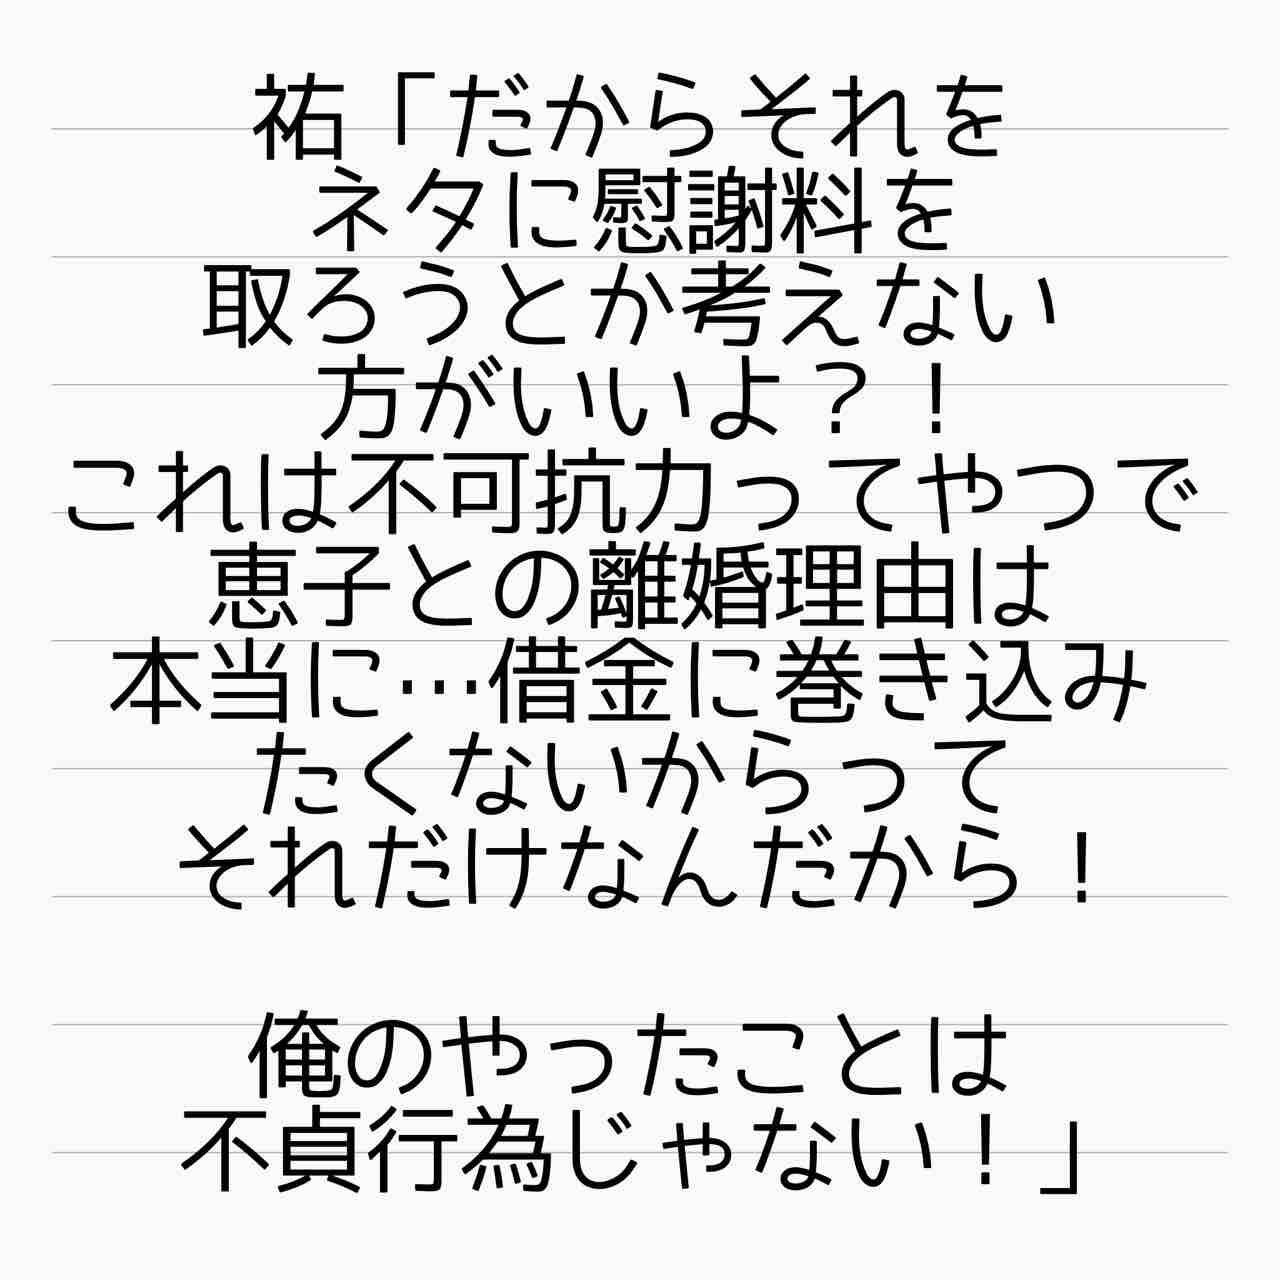 祐「だからそれを
ネタに慰謝料を
取ろうとか考えない
方がいいよ？！
これは不可抗力ってやつで
恵子との離婚理由は
本当に…借金に巻き込み
たくないからって
それだけなんだから！
俺のやったことは
不貞行為じゃない！」